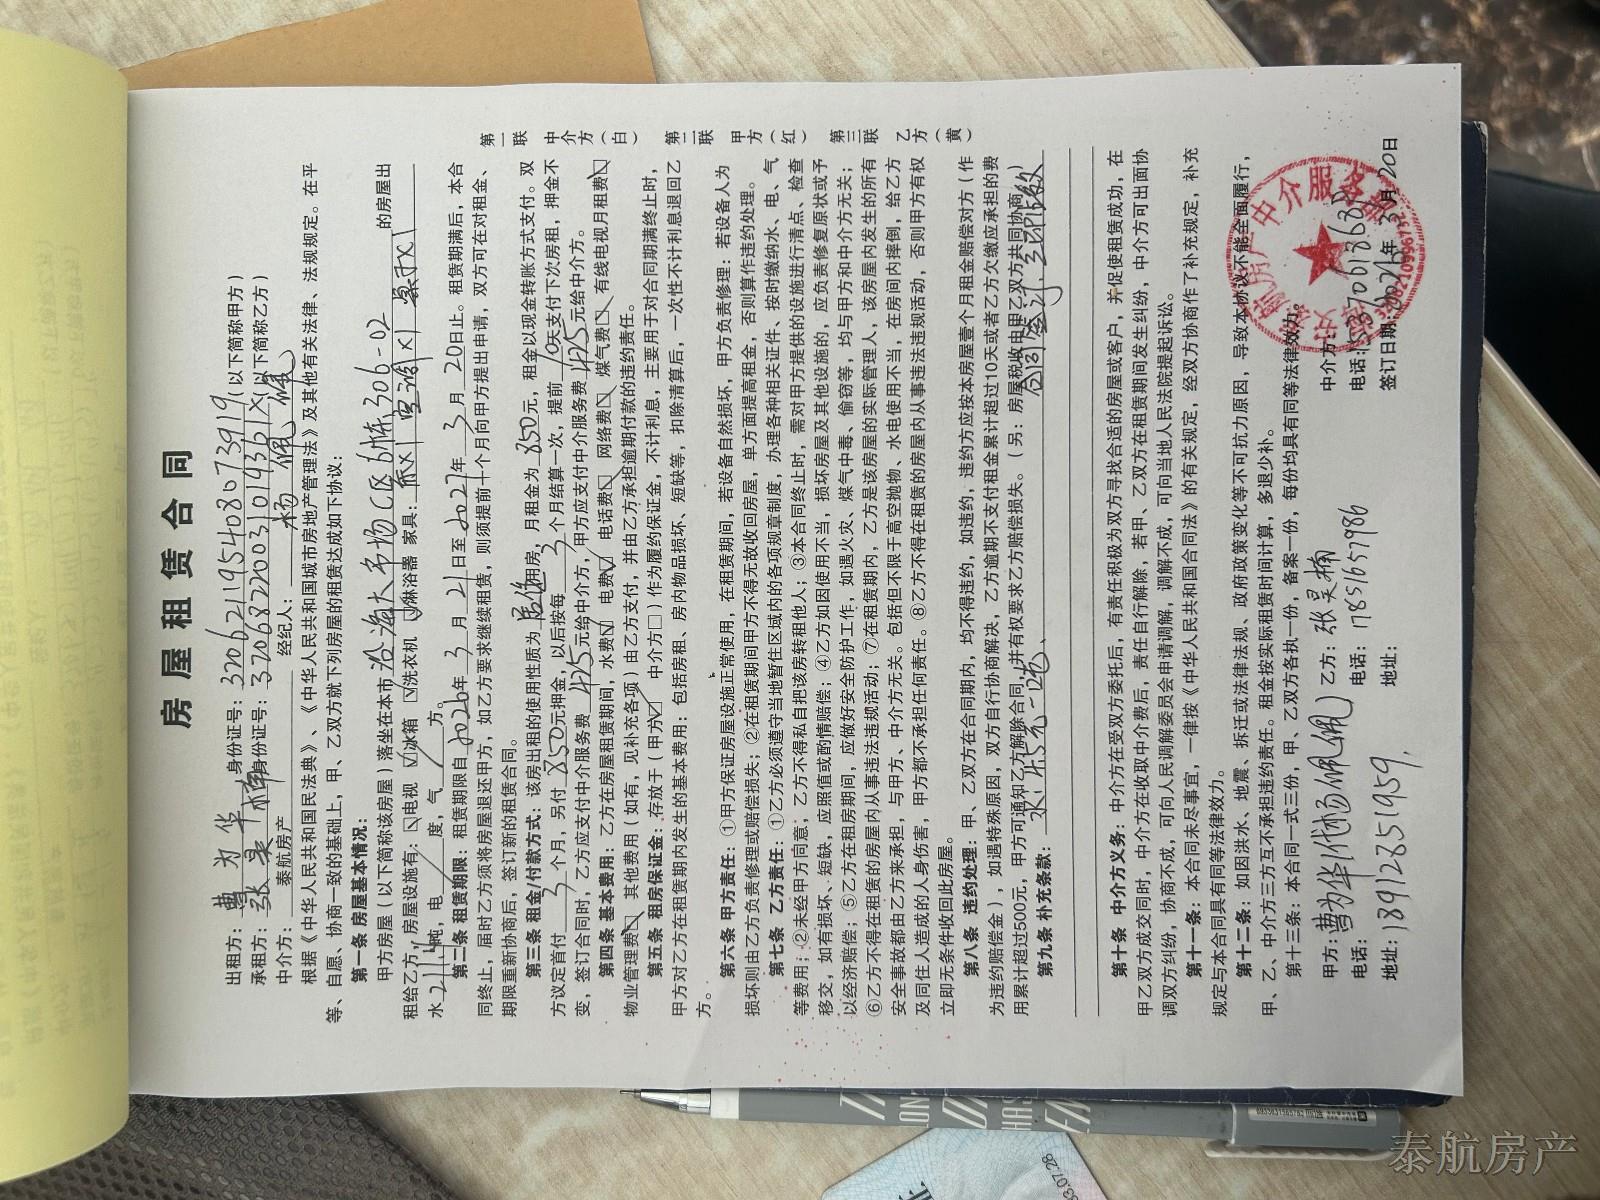 房屋租赁合同
出租方：曹为华 身份证号：320621195408073919（以下简称甲方）
承租方：张昊楠 身份证号：32068220031014361X（以下简称乙方）
中介方：泰航房产 经纪人：杨佩佩
根据《中华人民共和国民法典》、《中华人民共和国城市房地产管理法》及其他有关法律、法规规定。在平
等、自愿、协商一致的基础上，甲、乙双方就下列房屋的租赁达成如下协议：
第一条 房屋基本情况：
甲方房屋（以下简称该房屋）落坐在本市 C区6栋306-02 的房屋出
租给乙方；房屋设施有：电视 冰箱 洗衣机 淋浴器 家具：
水 吨，电 度，气 方。
第二条 租赁期限：租赁期限自2026年3月21日至2027年3月20日止。租赁期满后，本合
同终止，届时乙方须将房屋退还甲方，如乙方要求继续租赁，则须提前一个月向甲方提出申请，双方可在对租金、
期限重新协商后，签订新的租赁合同。
第三条 租金/付款方式：该房出租的使用性质为居住用房，月租金为850元，租金以现金转账方式支付。双
方议定首付3个月，另付850元押金，以后按每3个月结算一次，提前10天支付下次房租，押金不
变，签订合同时，乙方应支付中介服务费425元给中介方，甲方应支付中介服务费425元给中介方。
第四条 基本费用：乙方在房屋租赁期间，水费 电费 电话费 网络费 煤气费 有线电视月租费
物业管理费 其他费用（如有，见补充各项）由乙方支付，并由乙方承担逾期付款的违约责任。
第五条 租房保证金：存放于（甲方 中介方□）作为履约保证金，不计利息，主要用于对合同期满终止时，
甲方对乙方在租赁期内发生的基本费用：包括房租、房内物品损坏、短缺等，扣除清算后，一次性不计利息退回乙
方。
第六条 甲方责任：①甲方保证房屋设施正常使用，在租赁期间，若设备自然损坏，甲方负责修理；若设备人为
损坏则由乙方负责修理或赔偿损失；②在租赁期间甲方不得无故收回房屋，单方面提高租金，否则算作违约处理。
第七条 乙方责任：①乙方必须遵守当地暂住区域内的各项规章制度，办理各种相关证件、按时缴纳水、电、气
等费用；②未经甲方同意，乙方不得私自把该房转租他人；③本合同终止时，需对甲方提供的设施进行清点、检查
移交，如有损坏、短缺，应照值或酌情赔偿；④乙方如因使用不当，损坏房屋及其他设施的，应负责修复原状或予
以经济赔偿；⑤乙方在租房期间，应做好安全防护工作，如遇火灾、煤气中毒、偷窃等，均与甲方和中介方无关；
⑥乙方不得在租赁的房屋内从事违法违规活动；⑦在租赁期内，乙方是该房屋的实际管理人，该房屋内发生的所有
安全事故都由乙方来承担，与甲方、中介方无关。包括但不限于高空抛物、水电使用不当，在房间内摔倒，给乙方
及同住人造成的人身伤害，甲方都不承担任何责任。⑧乙方不得在租赁的房屋内从事违法违规活动，否则甲方有权
立即无条件收回此房屋。
第八条 违约处理：甲、乙双方在合同期内，均不得违约，如违约，违约方应按本房屋壹个月租金赔偿对方（作
为违约赔偿金），如遇特殊原因，双方自行协商解决，乙方逾期不支付租金累计超过10天或者乙方欠缴应承担的费
用累计超过500元，甲方可通知乙方解除合同，并有权要求乙方赔偿损失。（另：房屋税收由甲乙双方共同协商）
第九条 补充条款：
第十条 中介方义务：中介方在受双方委托后，有责任积极为双方寻找合适的房屋或客户，并促使租赁成功，在
甲乙双方成交同时，中介方在收取中介费后，责任自行解除，若甲、乙双方在租赁期间发生纠纷，中介方可出面协
调双方纠纷，协商不成，可向人民调解委员会申请调解，调解不成，可向当地人民法院提起诉讼。
第十一条：本合同未尽事宜，一律按《中华人民共和国合同法》的有关规定，经双方协商作了补充规定，补充
规定与本合同具有同等法律效力。
第十二条：如因洪水、地震、拆迁或法律法规、政府政策变化等不可抗力原因，导致本协议不能全面履行，
甲、乙、中介方三方互不承担违约责任。租金按实际租赁时间计算，多退少补。
第十三条：本合同一式三份，甲、乙双方各执一份，备案一份，每份均具有同等法律效力。
甲方：曹为华（代杨佩佩） 乙方：张昊楠 中介方：
电话： 电话：17851657986 电话：
地址：18912851959. 地址： 签订日期：2026年3月20日
第一联 中介方（白） 第二联 甲方（红） 第三联 乙方（黄）
泰航房产